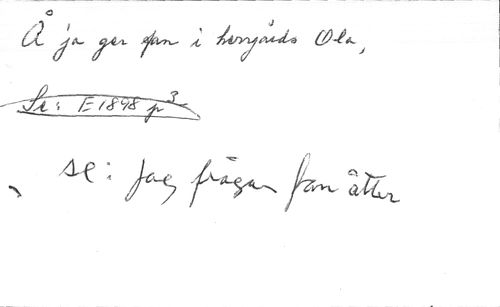 Å ja ger fan i herrgårds Ola,
Se: E1898 p 3
se: Jag frågar fan åtter